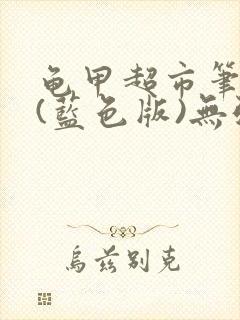 龟甲超市筆
(藍色版)無
烏兹别克